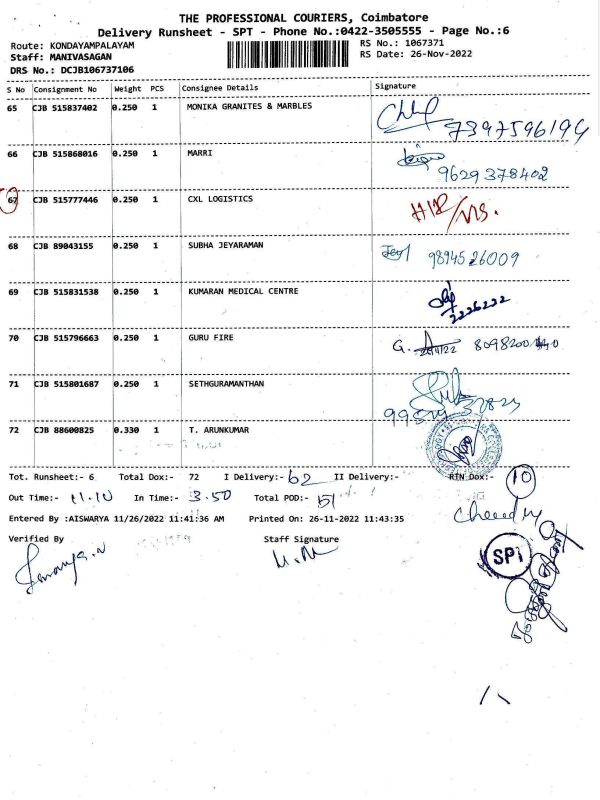 THE PROFESSIONAL COURIERS, Coimbatore
Delivery Runsheet - SPT - Phone No.:0422-3505555 - Page No.:6
Route: KONDAYAMPALAYAM
Staff: MANIVASAGAN
DRS No.: DCJB106737106
RS No.: 1067371
RS Date: 26-Nov-2022
S No Consignment No Weight PCS Consignee Details Signature
65 CJB 515837402 0.250 1 MONIKA GRANITES & MARBLES
7397596194
66 CJB 515868016 0.250 1 MARRI
9629378402
67 CJB 515777446 0.250 1 CXL LOGISTICS
68 CJB 89043155 0.250 1 SUBHA JEYARAMAN
9894526009
69 CJB 515831538 0.250 1 KUMARAN MEDICAL CENTRE
2226222
70 CJB 515796663 0.250 1 GURU FIRE G.
71 CJB 515801687 0.250 1 SETHGURAMANTHAN
72 CJB 88600825 0.330 1 T. ARUNKUMAR
Tot. Runsheet:- 6 Total Dox:- 72 I Delivery:- 62 II Delivery:- RTN Dox:- 10
Out Time:- 11.10 In Time:- 3.50 Total POD:- 51
Entered By :AISWARYA 11/26/2022 11:41:36 AM Printed On: 26-11-2022 11:43:35
Verified By Staff Signature
SPi